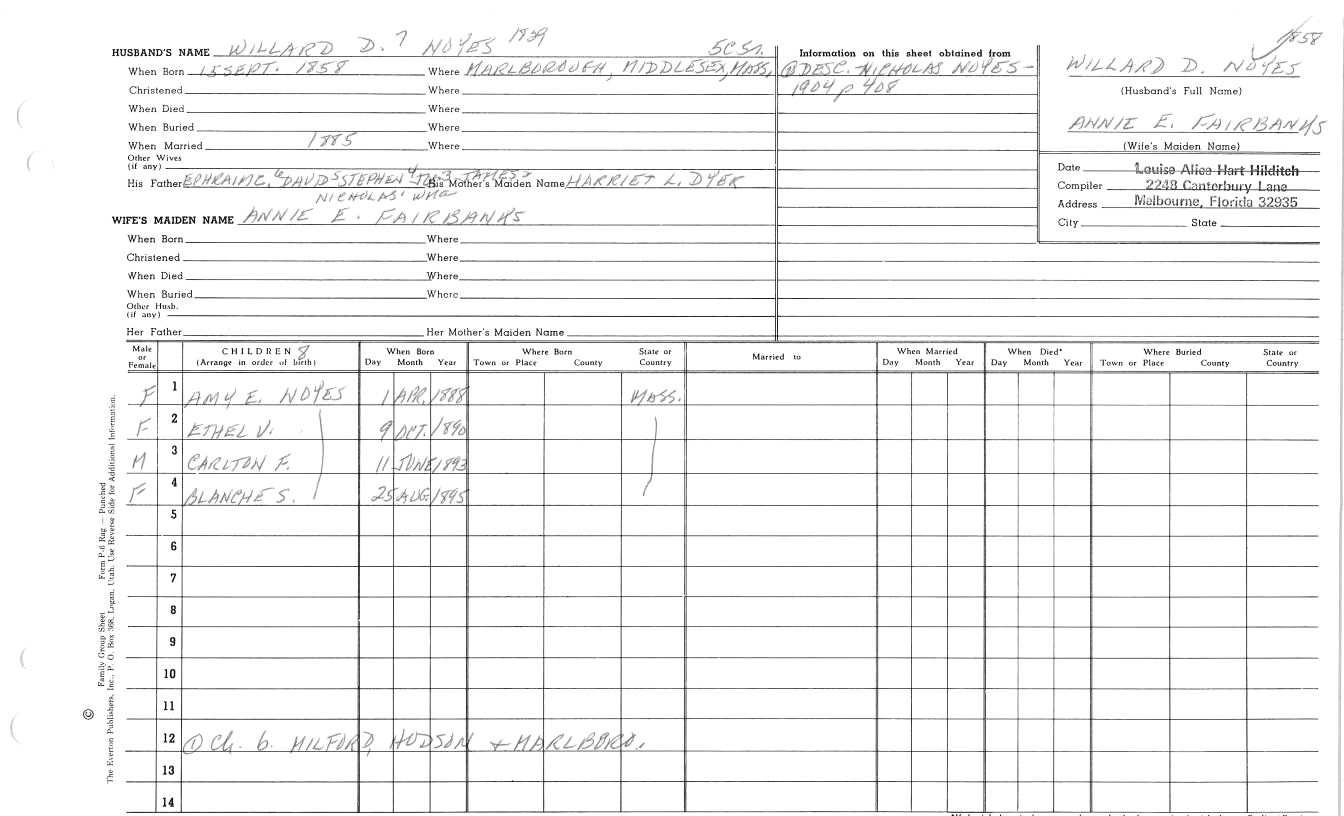 HUSBAND'S NAME WILLARD D. 7 NOYES 1839 5C5r.
When Born 15 SEPT. 1858 Where MARLBOROUGH, MIDDLESEX, MASS.
Christened Where
When Died Where
When Buried Where
When Married 1885 Where
Other Wives
(if any)
His Father EPHRAIM C. 6 DAVID 5 STEPHEN 4 3 JAMES 2 His Mother's Maiden Name HARRIET L. DYER
NICHOLAS 1 Wm a
WIFE'S MAIDEN NAME ANNIE E. FAIRBANKS
When Born Where
Christened Where
When Died Where
When Buried Where
Other Husb.
(if any)
Her Father Her Mother's Maiden Name
Information on this sheet obtained from
① DESC. NICHOLAS NOYES -
1904 p 408
1858
WILLARD D. NOYES
(Husband's Full Name)
ANNIE E. FAIRBANKS
(Wife's Maiden Name)
Date Louise Alice Hart Hilditch
Compiler 2248 Canterbury Lane
Address Melbourne, Florida 32935
City State
Male or Female CHILDREN 8 (Arrange in order of birth) When Born Day Month Year Where Born Town or Place County State or Country Married to When Married Day Month Year When Died* Day Month Year Where Buried Town or Place County State or Country
F 1 AMY E. NOYES 1 APR. 1888 MASS.
F 2 ETHEL V. 9 OCT. 1890
M 3 CARLTON F. 11 JUNE 1893
F 4 BLANCHE S. 25 AUG 1895
5
6
7
8
9
10
11
12 ① Ch. b. MILFORD, HUDSON + MARLBORO.
13
14
© Family Group Sheet Form P-6 Rag — Punched
The Everton Publishers, Inc., P. O. Box 368, Logan, Utah. Use Reverse Side for Additional Information.